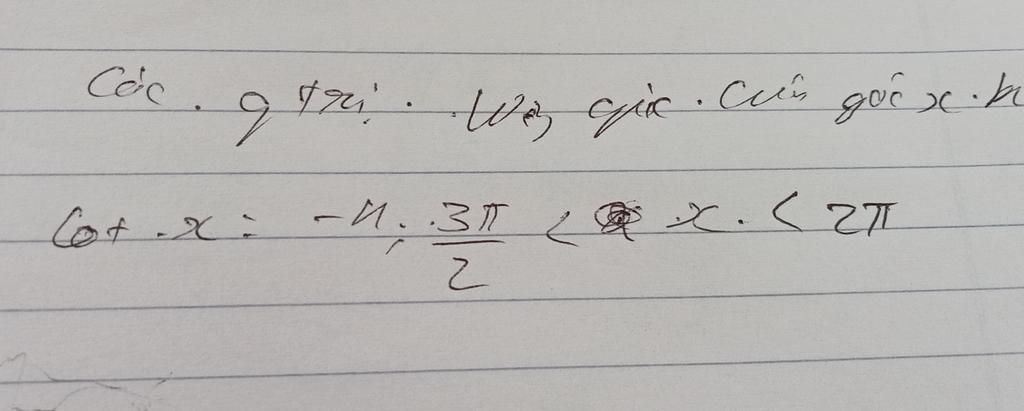 Các g trị lượng giác của góc x
cot x = -4; 3π/2 < x < 2π